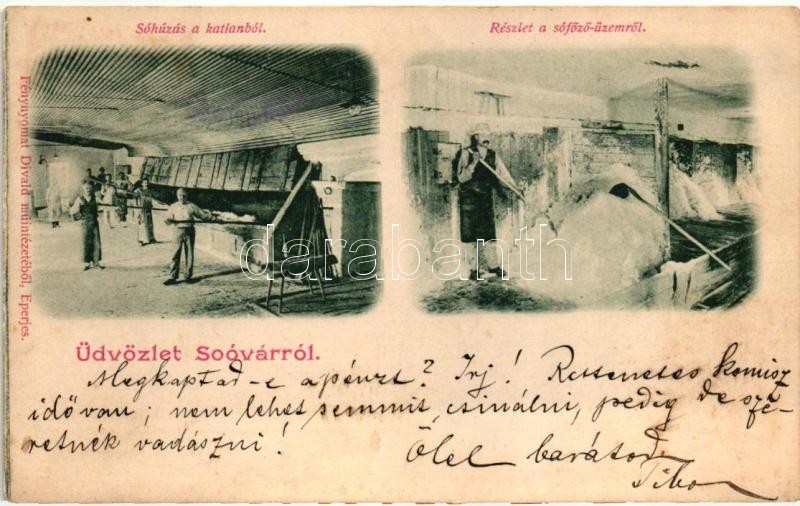 Sóhúzás a katlanból.
Részlet a sófőző-üzemről.
Fénynyomat Divald műintézetéből, Eperjes.
darabanth
Üdvözlet Soóvárról.
Megkaptad-e a pénzt? Irj! Rettenetes komisz
idő van; nem lehet semmit csinálni, pedig de sze-
retnék vadászni!
Ölel barátod
Tibor